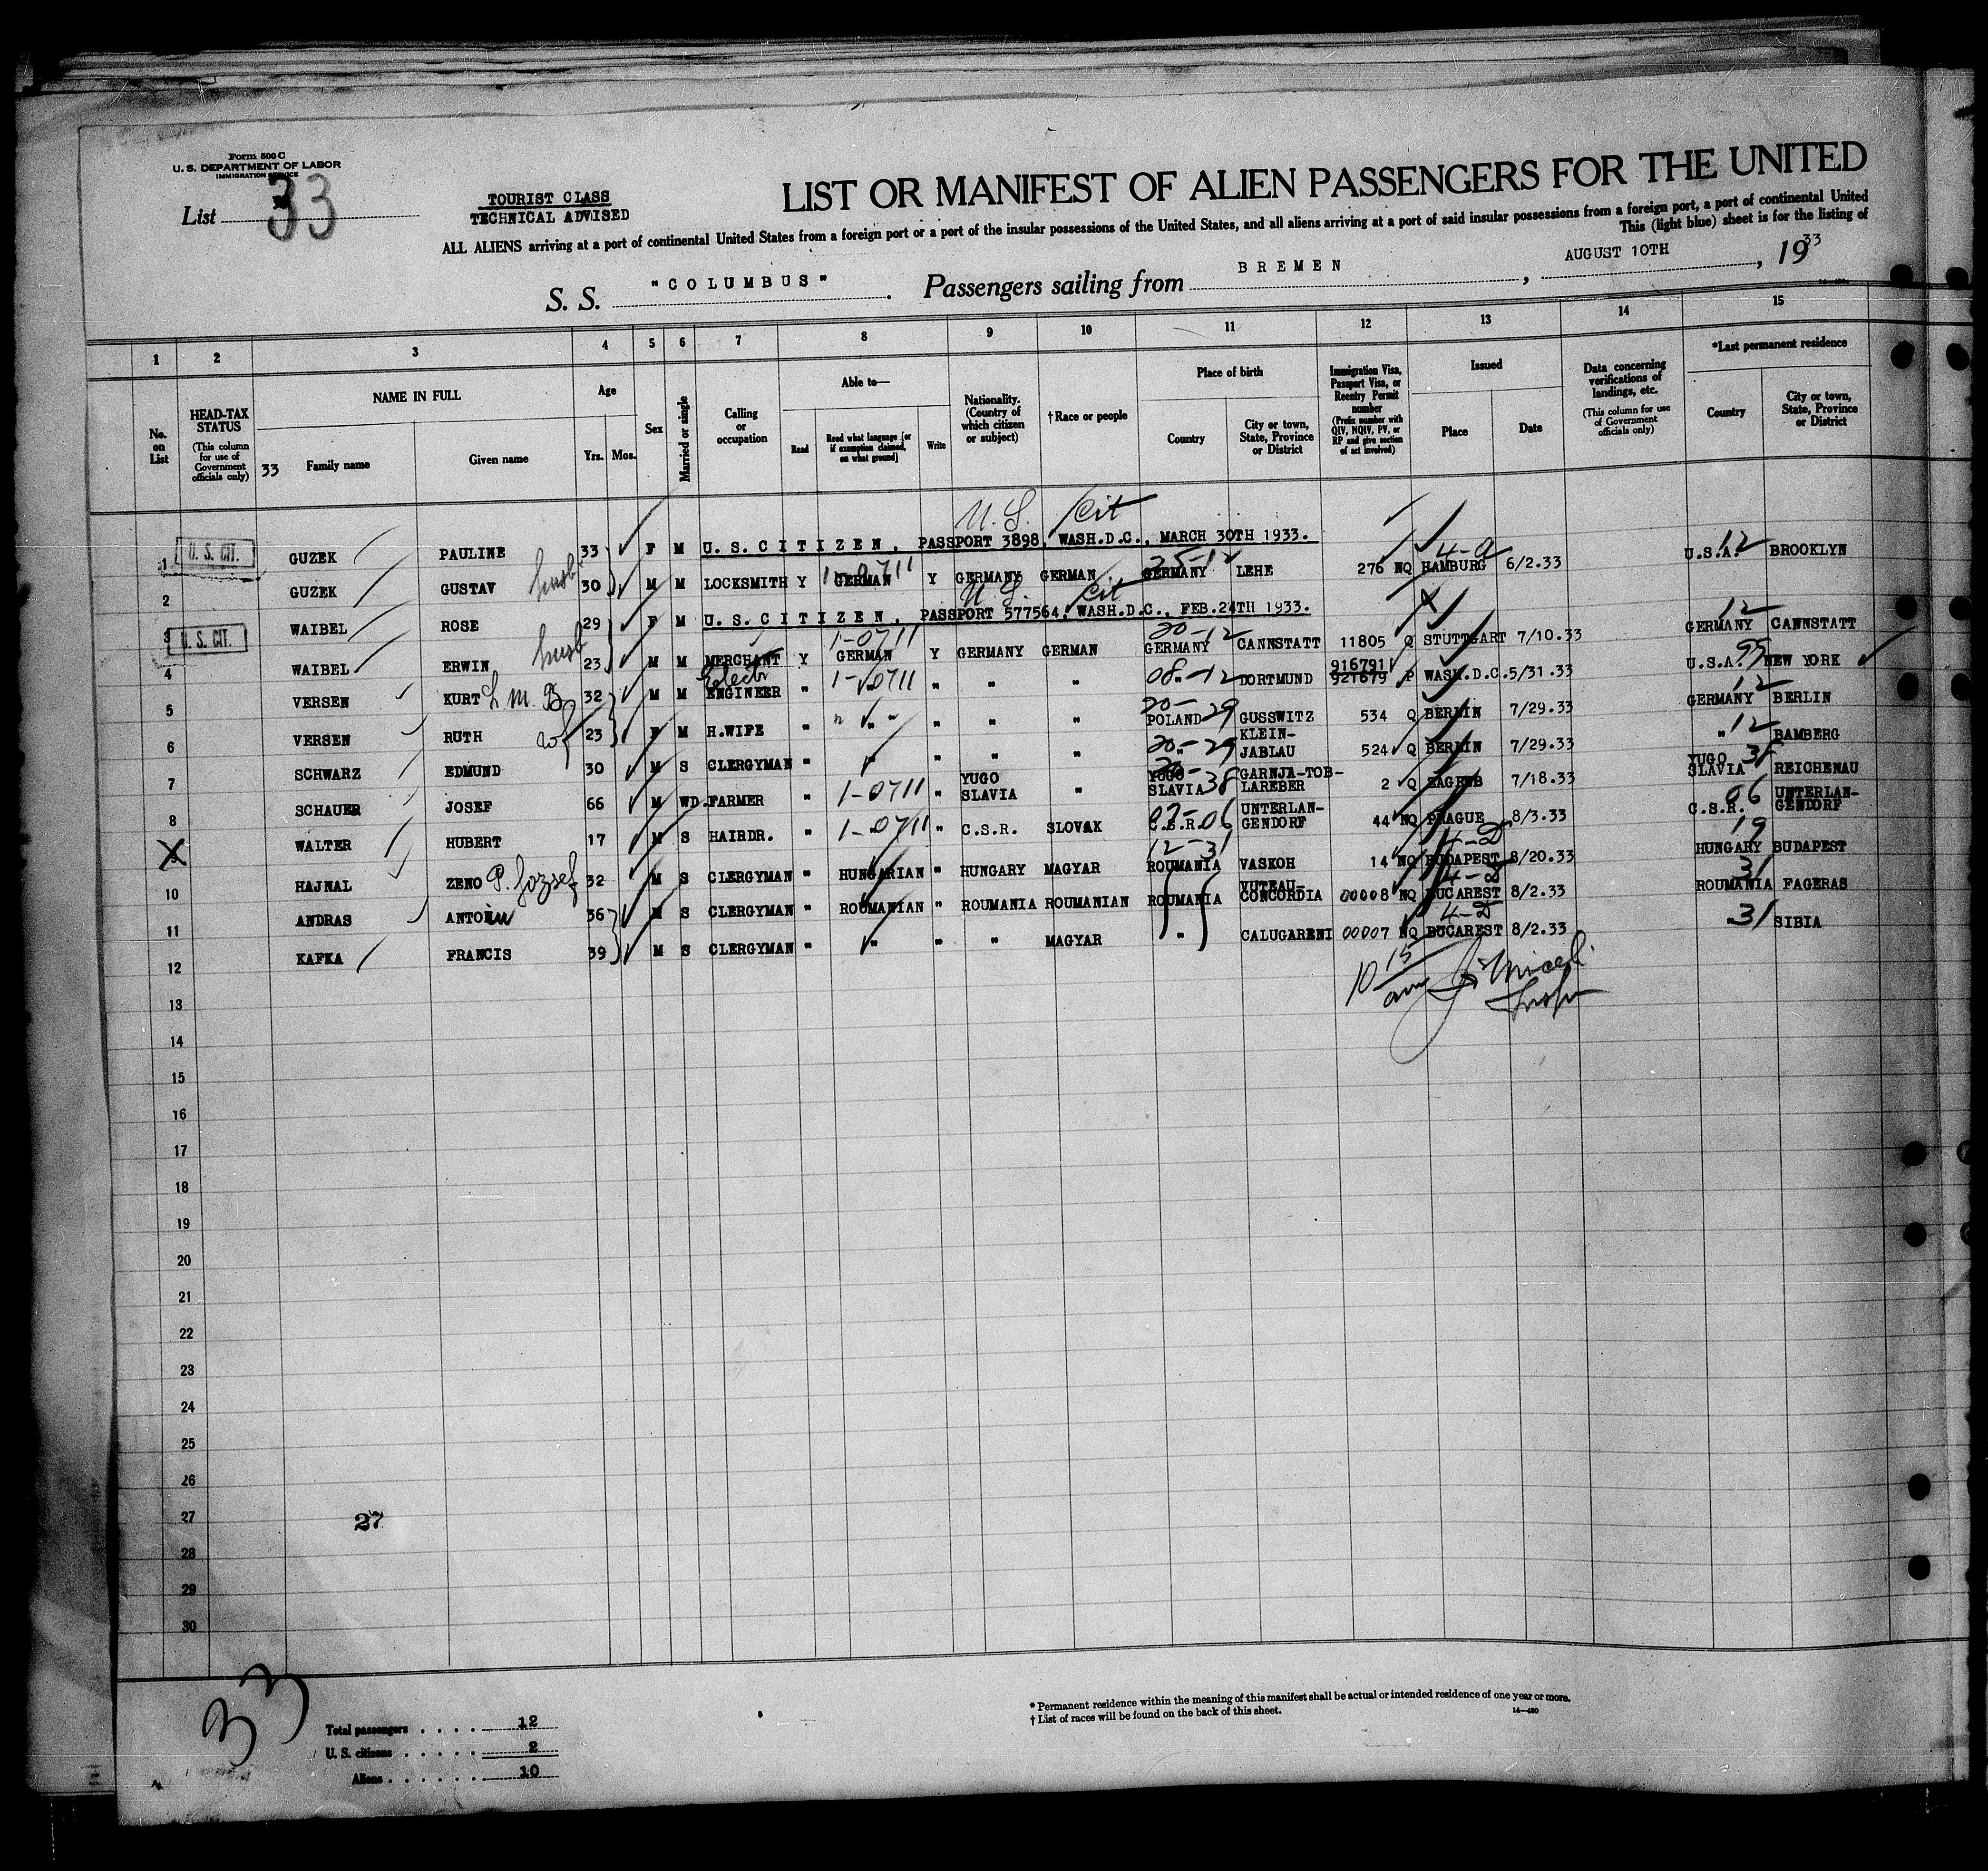 Form 500 C
U. S. DEPARTMENT OF LABOR
IMMIGRATION SERVICE
List 33
TOURIST CLASS
TECHNICAL ADVISED
LIST OR MANIFEST OF ALIEN PASSENGERS FOR THE UNITED
ALL ALIENS arriving at a port of continental United States from a foreign port or a port of the insular possessions of the United States, and all aliens arriving at a port of said insular possessions from a foreign port, a port of continental United
This (light blue) sheet is for the listing of
S. S. "COLUMBUS". Passengers sailing from BREMEN, AUGUST 10TH, 1933
1 2 3 4 5 6 7 8 9 10 11 12 13 14 15
No. on List
HEAD-TAX STATUS (This column for use of Government officials only)
NAME IN FULL
33 Family name Given name
Age Yrs. Mos.
Sex
Married or single
Calling or occupation
Able to— Read Read what language [or if exemption claimed, on what ground] Write
Nationality. (Country of which citizen or subject)
†Race or people
Place of birth Country City or town, State, Province or District
Immigration Visa, Passport Visa, or Reentry Permit number (Prefix number with QIV, NQIV, PV, or RP and give section of act involved)
Issued Place Date
Data concerning verifications of landings, etc. (This column for use of Government officials only)
*Last permanent residence Country City or town, State, Province or District
U. S. Cit
1 U. S. CIT. GUZEK PAULINE 33 F M U. S. CITIZEN, PASSPORT 3898, WASH.D.C., MARCH 30TH 1933.
2 GUZEK GUSTAV husb 30 M M LOCKSMITH Y 1-0711 GERMAN Y GERMANY GERMAN 25-12 GERMANY LEHE 276 NQ 4-a HAMBURG 6/2.33 U.S.A. 12 BROOKLYN
U. S. Cit
3 U. S. CIT. WAIBEL ROSE 29 F M U. S. CITIZEN, PASSPORT 577564, WASH.D.C., FEB.24TH 1933.
4 WAIBEL ERWIN husb 23 M M MERCHANT Y 1-0711 GERMAN Y GERMANY GERMAN 20-12 GERMANY CANNSTATT 11805 Q STUTTGART 7/10.33 12 GERMANY CANNSTATT
5 VERSEN KURT L. M. B. 32 M M Electr ENGINEER " 1-0711 " " " 08-12 DORTMUND 921679 9167911 P WASH.D.C. 5/31.33 U.S.A. 99 NEW YORK
6 VERSEN RUTH wf 23 F M H.WIFE " " " " " " 20-29 POLAND GUSSWITZ 534 Q BERLIN 7/29.33 12 GERMANY BERLIN
7 SCHWARZ EDMUND 30 M S CLERGYMAN " " " " 20-29 " KLEIN-JABLAU 524 Q BERLIN 7/29.33 " 12 BAMBERG
8 SCHAUER JOSEF 66 M WD. FARMER " 1-0711 " YUGO SLAVIA " 20-38 YUGO SLAVIA GARNJA-TOB-LAREBER 2 Q ZAGREB 7/18.33 YUGO SLAVIA 38 REICHENAU
9 WALTER HUBERT 17 M S HAIRDR. " 1-0711 " C.S.R. SLOVAK 07-06 C.S.R. UNTERLAN-GENDORF 44 NQ PRAGUE 8/3.33 06 C.S.R. UNTERLAN-GENDORF
10 HAJNAL ZENO P. Jozsef 32 M S CLERGYMAN " HUNGARIAN " HUNGARY MAGYAR 12-31 ROUMANIA VASKOH 14 NQ 4-D BUDAPEST 8/20.33 19 HUNGARY BUDAPEST
11 ANDRAS ANTOIN 36 M S CLERGYMAN " ROUMANIAN " ROUMANIA ROUMANIAN ROUMANIA CONCORDIA 00008 NQ BUCAREST 8/2.33 31 ROUMANIA FAGERAS
12 KAFKA FRANCIS 39 M S CLERGYMAN " " " " MAGYAR " CALUGARENI 00007 NQ 4-D BUCAREST 8/2.33 31 SIBIA
13
14
15
16
17
18
19
20
21
22
23
24
25
26
27 27
28
29
30
33
Total passengers 12
U. S. citizens 2
Aliens 10
* Permanent residence within the meaning of this manifest shall be actual or intended residence of one year or more.
† List of races will be found on the back of this sheet.